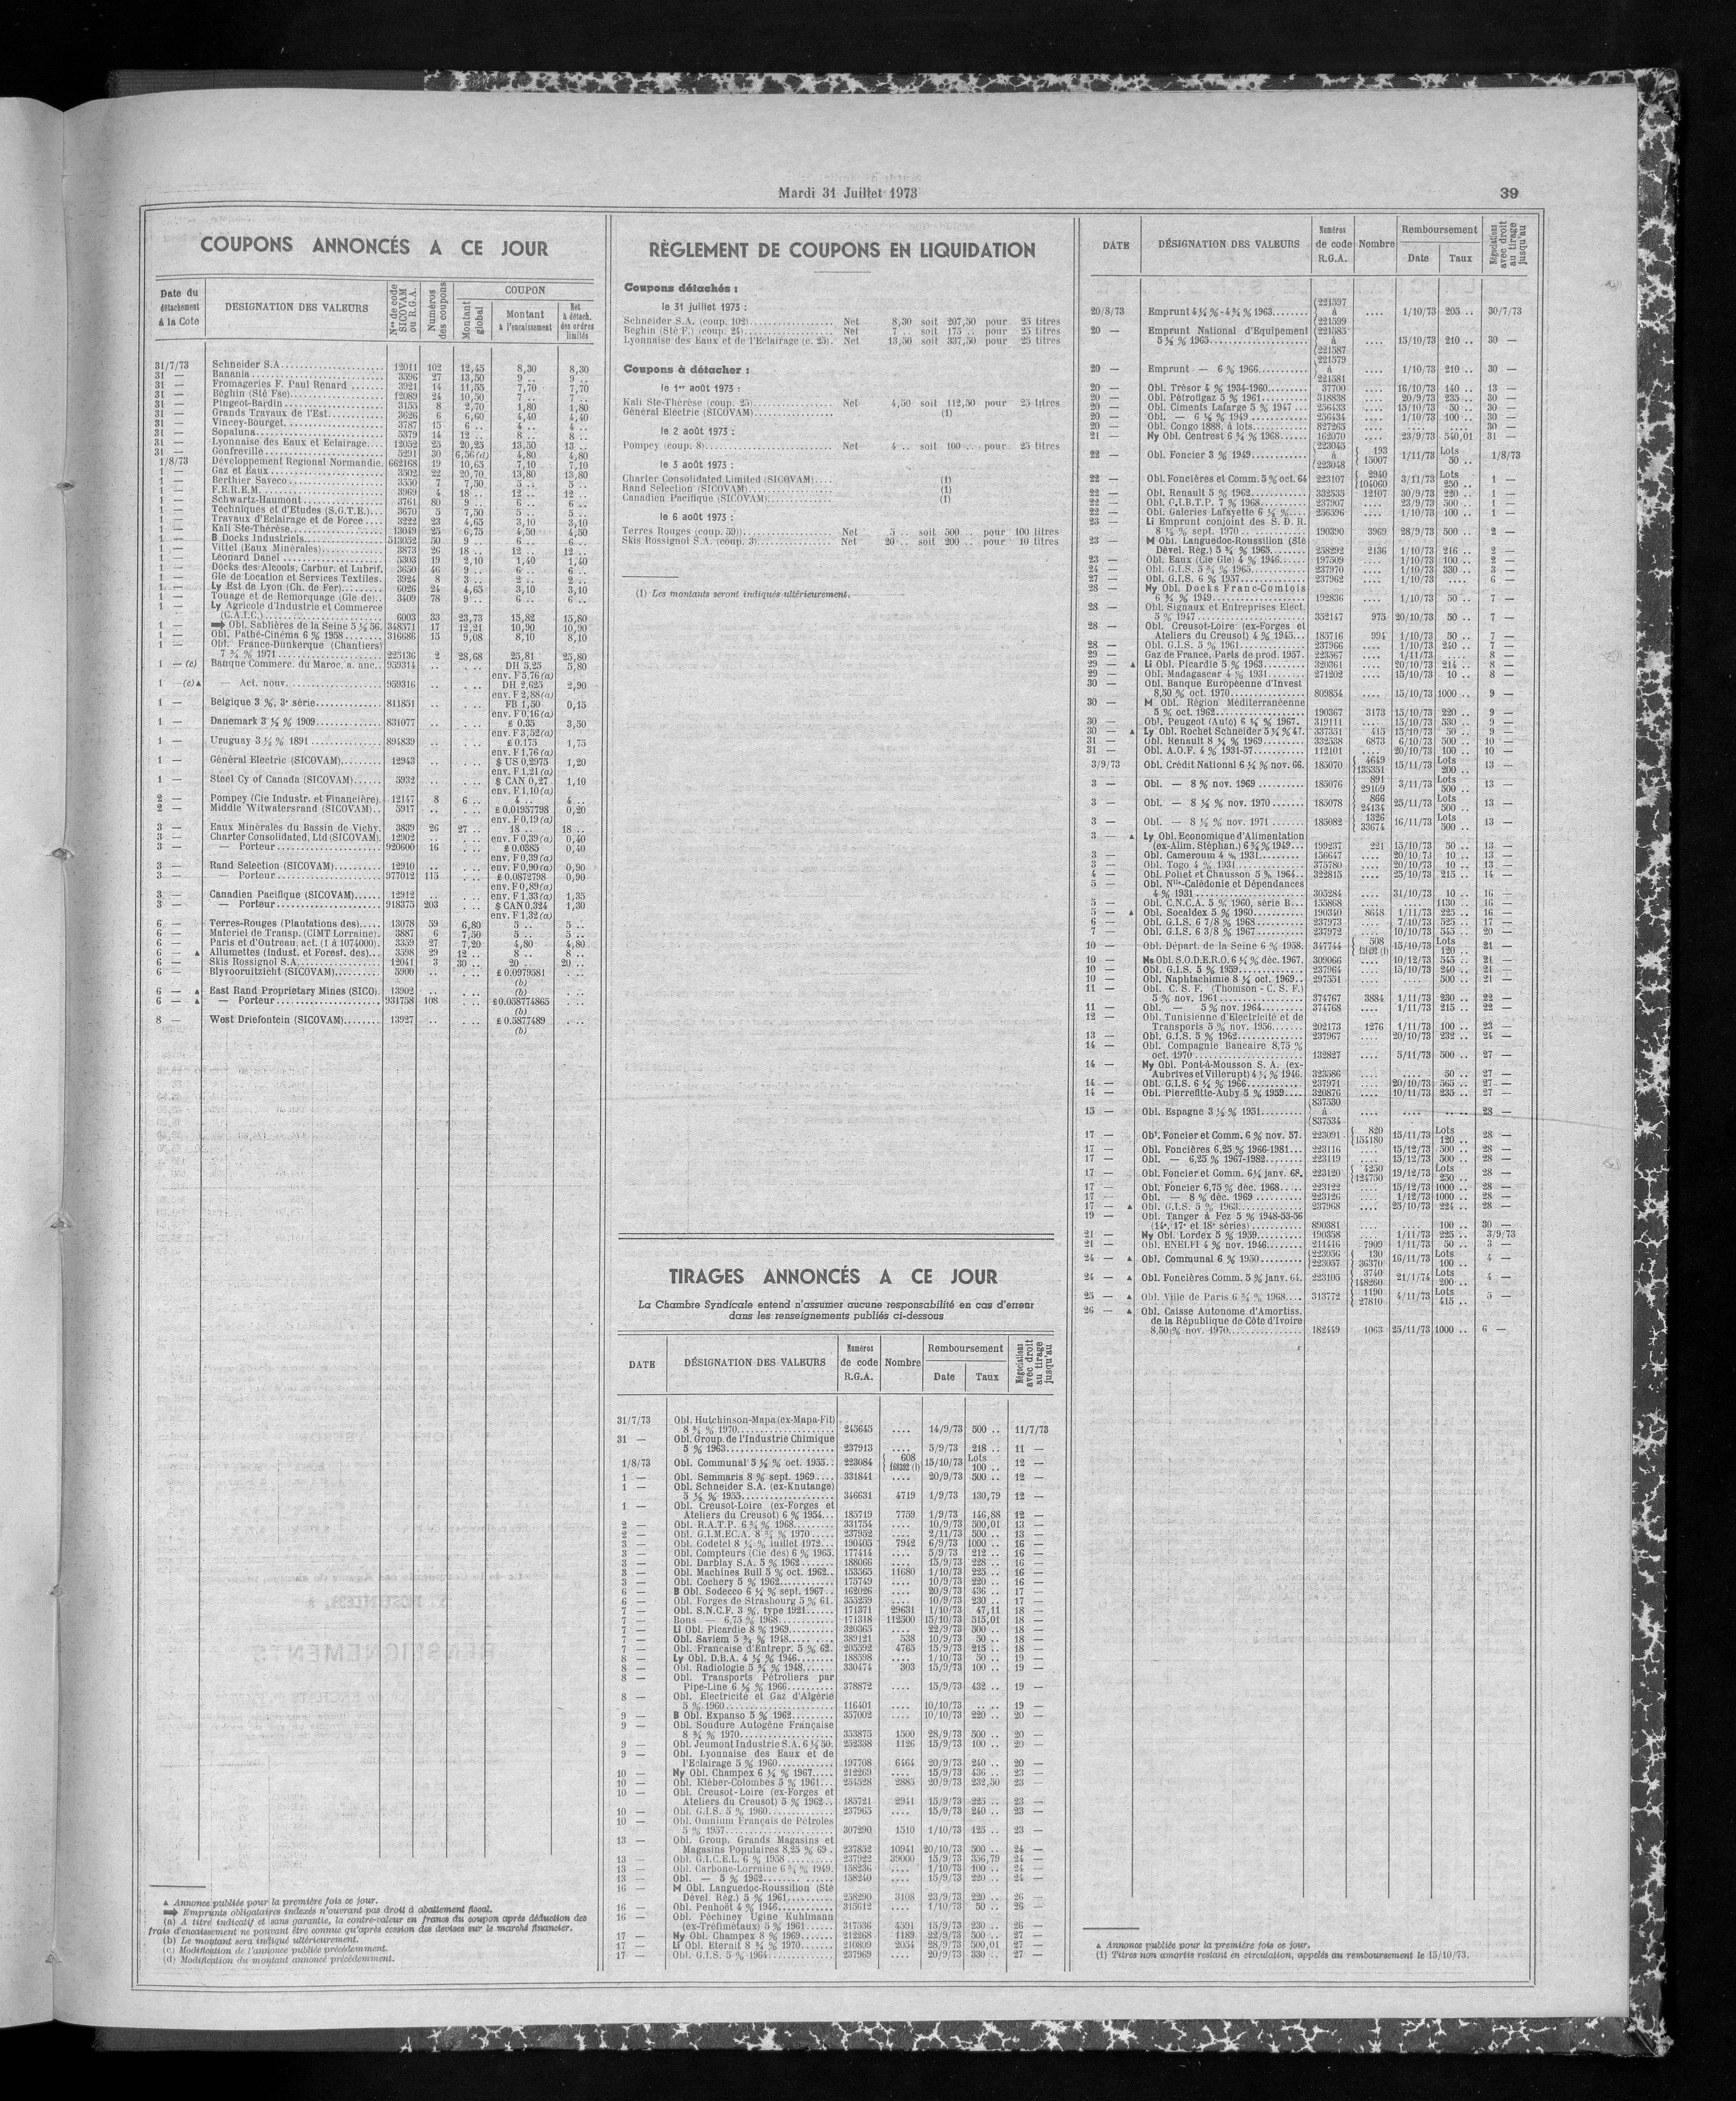 Mardi 31 Juillet 1973
39
COUPONS ANNONCÉS A CE JOUR
Date du détachement à la Cote
DESIGNATION DES VALEURS
Nos de code SICOVAM ou R.G.A.
Numéros des coupons
COUPON
Montant global
Montant à l'encaissement
Net à détach. des ordres limités
31/7/73 Schneider S.A. 12011 102 12,45 8,30 8,30
31 — Banania 3596 27 13,50 9 .. 9 ..
31 — Fromageries F. Paul Renard 3921 14 11,55 7,70 7,70
31 — Béghin (Sté Fse) 12089 24 10,50 7 .. 7 ..
31 — Pingeot-Bardin 3155 8 2,70 1,80 1,80
31 — Grands Travaux de l'Est 3626 6 6,60 4,40 4,40
31 — Vincey-Bourget 3787 15 6 .. 4 .. 4 ..
31 — Sopaluna 5379 14 12 .. 8 .. 8 ..
31 — Lyonnaise des Eaux et Eclairage 12052 25 20,25 13,50 13 ..
31 — Gonfreville 5291 30 6,56(d) 4,80 4,80
1/8/73 Développement Regional Normandie. 662168 19 10,65 7,10 7,10
1 — Gaz et Eaux 3502 22 20,70 13,80 13,80
1 — Berthier Saveco 3550 7 7,50 5 .. 5 ..
1 — F.E.R.E.M. 3969 4 18 .. 12 .. 12 ..
1 — Schwartz-Haumont 3761 80 9 .. 6 .. 6 ..
1 — Techniques et d'Etudes (S.G.T.E.) 3670 5 7,50 5 .. 5 ..
1 — Travaux d'Eclairage et de Force 3222 23 4,65 3,10 3,10
1 — Kali Ste-Thérèse 13049 25 6,75 4,50 4,50
1 — B Docks Industriels 513052 50 9 .. 6 .. 6 ..
1 — Vittel (Eaux Minérales) 3873 26 18 .. 12 .. 12 ..
1 — Léonard Danel 5303 19 2,10 1,40 1,40
1 — Docks des Alcools, Carbur. et Lubrif. 3650 46 9 .. 6 .. 6 ..
1 — Gle de Location et Services Textiles. 3924 8 3 .. 2 .. 2 ..
1 — Ly Est de Lyon (Ch. de Fer) 6026 24 4,65 3,10 3,10
1 — Touage et de Remorquage (Gle de) 3409 78 9 .. 6 .. 6 ..
1 — Ly Agricole d'Industrie et Commerce
(C.A.I.C.) 6003 33 23,73 15,82 15,80
1 — ➡ Obl. Sablières de la Seine 5 ½ 56. 348571 17 12,21 10,90 10,90
1 — Obl. Pathé-Cinéma 6 % 1958 316686 15 9,08 8,10 8,10
1 — Obl. France-Dunkerque (Chantiers)
7 ¾ % 1971 225136 2 28,68 25,81 25,80
1 — (c) Banque Commerc. du Maroc. a. anc. 959314 .. ... DH 5,25 5,80
env. F 5,76 (a)
1 — (c) ▲ — Act. nouv. 959316 .. ... DH 2,625 2,90
env. F 2,88 (a)
1 — Belgique 3 %, 3e série 811851 .. ... FB 1,50 0,15
env. F 0,16 (a)
1 — Danemark 3 ½ % 1909 831077 .. ... £ 0.35 3,50
env. F 3,52 (a)
1 — Uruguay 3 ½ % 1891 894839 .. ... £ 0.175 1,75
env. F 1,76 (a)
1 — Général Electric (SICOVAM) 12943 .. ... $ US 0,2975 1,20
env. F 1,21 (a)
1 — Steel Cy of Canada (SICOVAM) 5932 .. ... $ CAN 0,27 1,10
env. F 1,10 (a)
2 — Pompey (Cie Industr. et Financière). 12147 8 6 .. 4 .. 4 ..
2 — Middle Witwatersrand (SICOVAM) 5917 .. ... £ 0.01957798 0,20
env. F 0,19 (a)
3 — Eaux Minérales du Bassin de Vichy. 3839 26 27 .. 18 .. 18 ..
3 — Charter Consolidated, Ltd (SICOVAM). 12902 .. ... env. F 0,39 (a) 0,40
3 — — Porteur 920600 16 ... £ 0.0385 0,40
env. F 0,39 (a)
3 — Rand Selection (SICOVAM) 12910 .. ... env. F 0,90 (a) 0,90
3 — — Porteur 977012 115 ... £ 0.0872798 0,90
env. F 0,89 (a)
3 — Canadien Pacifique (SICOVAM) 12912 .. ... env. F 1,33 (a) 1,35
3 — — Porteur 918375 203 ... $ CAN 0,324 1,30
env. F 1,32 (a)
6 — Terres-Rouges (Plantations des) 13078 59 6,80 5 .. 5 ..
6 — Materiel de Transp. (CIMT Lorraine). 3887 6 7,50 5 .. 5 ..
6 — Paris et d'Outreau, act. (1 à 1074000). 3359 27 7,20 4,80 4,80
6 — ▲ Allumettes (Indust. et Forest. des) 3598 29 12 .. 8 .. 8 ..
6 — Skis Rossignol S.A. 12041 3 30 .. 20 .. 20 ..
6 — Blyvooruitzicht (SICOVAM) 5900 .. ... £ 0.0979581 ...
(b)
6 — ▲ East Rand Proprietary Mines (SICO). 13902 .. ... (b) ...
6 — ▲ — Porteur 931758 108 ... £0.058774865 ...
(b)
8 — West Driefontein (SICOVAM) 13927 .. ... £ 0.5877489 ...
(b)
▲ Annonce publiée pour la première fois ce jour.
➡ Emprunts obligataires indexés n'ouvrant pas droit à abattement fiscal.
(a) A titre indicatif et sans garantie, la contre-valeur en francs du coupon après déduction des
frais d'encaissement ne pouvant être connue qu'après cession des devises sur le marché financier.
(b) Le montant sera indiqué ultérieurement.
(c) Modification de l'annonce publiée précédemment.
(d) Modification du montant annoncé précédemment.
RÈGLEMENT DE COUPONS EN LIQUIDATION
Coupons détachés :
le 31 juillet 1973 :
Schneider S.A. (coup. 102) Net 8,30 soit 207,50 pour 25 titres
Beghin (Sté F.) (coup. 24) Net 7 .. soit 175 .. pour 25 titres
Lyonnaise des Eaux et de l'Eclairage (c. 25). Net 13,50 soit 337,50 pour 25 titres
Coupons à détacher :
le 1er août 1973 :
Kali Ste-Thérèse (coup. 25) Net 4,50 soit 112,50 pour 25 titres
Général Electric (SICOVAM) (1)
le 2 août 1973 :
Pompey (coup. 8) Net 4 .. soit 100 .. pour 25 titres
le 3 août 1973 :
Charter Consolidated Limited (SICOVAM) (1)
Rand Selection (SICOVAM) (1)
Canadien Pacifique (SICOVAM) (1)
le 6 août 1973 :
Terres Rouges (coup. 59) Net 5 .. soit 500 .. pour 100 titres
Skis Rossignol S.A. (coup. 3) Net 20 .. soit 200 .. pour 10 titres
(1) Les montants seront indiqués ultérieurement.
TIRAGES ANNONCÉS A CE JOUR
La Chambre Syndicale entend n'assumer aucune responsabilité en cas d'erreur
dans les renseignements publiés ci-dessous
DATE
DÉSIGNATION DES VALEURS
Numéros de code R.G.A.
Nombre
Remboursement
Date
Taux
Négociations avec droit au tirage jusqu'au
31/7/73 Obl. Hutchinson-Mapa (ex-Mapa-Fit)
8 ¾ % 1970 245645 .... 14/9/73 500 .. 11/7/73
31 — Obl. Group. de l'Industrie Chimique
5 % 1963 237913 .... 5/9/73 218 .. 11 —
1/8/73 Obl. Communal 5 ½ % oct. 1955 223084 { 608 168392 (1) 15/10/73 Lots 100 .. 12 —
1 — Obl. Semmaris 8 % sept. 1969 331841 .... 20/9/73 500 .. 12 —
1 — Obl. Schneider S.A. (ex-Knutange)
5 ½ % 1955 346631 4719 1/9/73 130,79 12 —
1 — Obl. Creusot-Loire (ex-Forges et
Ateliers du Creusot) 6 % 1954 185719 7759 1/9/73 146,88 12 —
2 — Obl. R.A.T.P. 6 ¾ % 1968 331754 .... 10/9/73 500,01 13 —
2 — Obl. G.I.M.EC.A. 8 ¾ % 1970 237952 .... 2/11/73 500 .. 13 —
3 — Obl. Codetel 8 ¼ % juillet 1972 190405 7942 6/9/73 1000 .. 16 —
3 — Obl. Compteurs (Cie des) 6 % 1965. 177414 .... 5/9/73 212 .. 16 —
3 — Obl. Darblay S.A. 5 % 1962 188066 .... 15/9/73 228 .. 16 —
3 — Obl. Machines Bull 5 % oct. 1962 153565 11680 1/10/73 225 .. 16 —
3 — Obl. Cochery 5 % 1962 175749 .... 10/9/73 220 .. 16 —
6 — B Obl. Sodecco 6 ¼ % sept. 1967 162026 .... 20/9/73 436 .. 17 —
6 — Obl. Forges de Strasbourg 5 % 61. 355259 .... 10/9/73 230 .. 17 —
7 — Obl. S.N.C.F. 3 %, type 1921 171371 29631 1/10/73 47,11 18 —
7 — Bons — 6,75 % 1968 171318 112500 15/10/73 515,01 18 —
7 — Li Obl. Picardie 8 % 1969 320365 .... 22/9/73 500 .. 18 —
7 — Obl. Saviem 5 ¾ % 1948 389121 538 10/9/73 50 .. 18 —
7 — Obl. Française d'Entrepr. 5 % 62. 205592 4765 15/9/73 215 .. 18 —
8 — Ly Obl. D.B.A. 4 ½ % 1946 188598 .... 1/10/73 50 .. 19 —
8 — Obl. Radiologie 5 ¾ % 1948 330474 303 15/9/73 100 .. 19 —
8 — Obl. Transports Pétroliers par
Pipe-Line 6 ½ % 1966 378872 .... 15/9/73 432 .. 19 —
8 — Obl. Electricité et Gaz d'Algérie
5 % 1960 116401 .... 10/10/73 .. .. 19 —
9 — B Obl. Expanso 5 % 1962 357002 .... 10/10/73 220 .. 20 —
9 — Obl. Soudure Autogène Française
8 ¾ % 1970 353875 1500 28/9/73 500 .. 20 —
9 — Obl. Jeumont Industrie S.A. 6 ½ 50. 252338 1126 15/9/73 100 .. 20 —
9 — Obl. Lyonnaise des Eaux et de
l'Eclairage 5 % 1960 197708 6464 20/9/73 240 .. 20 —
10 — Ny Obl. Champex 6 ¼ % 1967 212269 .... 15/9/73 436 .. 23 —
10 — Obl. Kléber-Colombes 5 % 1961 254528 2885 20/9/73 232,50 23 —
10 — Obl. Creusot-Loire (ex-Forges et
Ateliers du Creusot) 5 % 1962 185721 2941 15/9/73 225 .. 23 —
10 — Obl. G.I.S. 5 % 1960 237965 .... 15/9/73 240 .. 23 —
10 — Obl. Omnium Français de Pétroles
5 % 1957 307290 1510 1/10/73 125 .. 23 —
13 — Obl. Group. Grands Magasins et
Magasins Populaires 8,25 % 69 237852 10941 20/10/73 500 .. 24 —
13 — Obl. G.I.C.E.L. 6 % 1958 237922 39000 15/9/73 356,79 24 —
13 — Obl. Carbone-Lorraine 6 ¾ % 1949. 158236 .... 1/10/73 100 .. 24 —
13 — Obl. — 5 % 1962 158240 .... 15/9/73 220 .. 24 —
16 — M Obl. Languedoc-Roussillon (Sté
Dével. Rég.) 5 % 1961 258290 3108 23/9/73 220 .. 26 —
16 — Obl. Penhoët 4 % 1946 315612 .... 1/10/73 50 .. 26 —
16 — Obl. Péchiney Ugine Kuhlmann
(ex-Tréfimétaux) 5 % 1961 317536 4591 15/9/73 230 .. 26 —
17 — Ny Obl. Champex 8 % 1969 212268 1189 22/9/73 500 .. 27 —
17 — Li Obl. Eternit 8 ¾ % 1970 210809 2054 28/9/73 500,01 27 —
17 — Obl. G.I.S. 5 % 1964 237969 .... 20/9/73 330 .. 27 —
DATE
DÉSIGNATION DES VALEURS
Numéros de code R.G.A.
Nombre
Remboursement
Date
Taux
Négociations avec droit au tirage jusqu'au
20/8/73 Emprunt 4 ¼ % - 4 ¾ % 1963 (221597 à (221599 .... 1/10/73 205 .. 30/7/73
20 — Emprunt National d'Equipement
5 ½ % 1965 (221585 à (221587 .... 15/10/73 210 .. 30 —
20 — Emprunt — 6 % 1966 221579 à 221581 .... 1/10/73 210 .. 30 —
20 — Obl. Trésor 4 % 1934-1960 37700 .... 16/10/73 140 .. 13 —
20 — Obl. Pétrofigaz 5 % 1961 318838 .... 20/9/73 235 .. 30 —
20 — Obl. Ciments Lafarge 5 % 1947 256433 .... 15/10/73 50 .. 30 —
20 — Obl. — 6 ½ % 1949 256434 .... 1/10/73 100 .. 30 —
20 — Obl. Congo 1888, à lots 827265 .... .... .... 30 —
21 — Ny Obl. Centrest 6 ¼ % 1968 162070 .... 23/9/73 540,01 31 —
22 — Obl. Foncier 3 % 1949 (223045 à (223048 { 193 15007 1/11/73 Lots 50 .. 1/8/73
22 — Obl. Foncières et Comm. 5 % oct. 64 223107 { 2940 104060 3/11/73 Lots 250 .. 1 —
22 — Obl. Renault 5 % 1962 332535 12107 30/9/73 220 .. 1 —
22 — Obl. G.I.B.T.P. 7 % 1968 237907 .... 23/9/73 500 .. 1 —
22 — Obl. Galeries Lafayette 6 ½ % 256596 .... 1/10/73 100 .. 1 —
23 — Li Emprunt conjoint des S. D. R.
8 ½ % sept. 1970 190390 3969 28/9/73 500 .. 2 —
23 — M Obl. Languedoc-Roussillon (Sté
Dével. Rég.) 5 ¾ % 1965 258292 2136 1/10/73 216 .. 2 —
23 — Obl. Eaux (Cie Gle) 4 % 1946 197509 .... 1/10/73 100 .. 2 —
24 — Obl. G.I.S. 5 ¾ % 1965 237970 .... 1/10/73 330 .. 3 —
27 — Obl. G.I.S. 6 % 1957 237962 .... 1/10/73 .... 6 —
28 — Ny Obl. Docks Franc-Comtois
6 ¾ % 1949 192836 .... 1/10/73 50 .. 7 —
28 — Obl. Signaux et Entreprises Elect.
5 % 1947 352147 975 20/10/73 50 .. 7 —
28 — Obl. Creusot-Loire (ex-Forges et
Ateliers du Creusot) 4 % 1945 185716 994 1/10/73 50 .. 7 —
28 — Obl. G.I.S. 5 % 1961 237966 .... 1/10/73 240 .. 7 —
29 — Gaz de France, Parts de prod. 1957. 223567 .... 1/11/73 .... 8 —
29 — ▲ Li Obl. Picardie 5 % 1963 320361 .... 20/10/73 214 .. 8 —
29 — Obl. Madagascar 4 % 1931 271202 .... 15/10/73 10 .. 8 —
30 — Obl. Banque Européenne d'Invest
8,50 % oct. 1970 809854 .... 15/10/73 1000 .. 9 —
30 — M Obl. Région Méditerranéenne
5 % oct. 1962 190367 3173 15/10/73 220 .. 9 —
30 — Obl. Peugeot (Auto) 6 ¼ % 1967. 319111 .... 15/10/73 530 .. 9 —
30 — ▲ Ly Obl. Rochet Schneider 5 ¾ % 47. 337351 415 15/10/73 50 .. 9 —
31 — Obl. Renault 8 ¾ % 1969 332538 6873 6/10/73 500 .. 10 —
31 — Obl. A.O.F. 4 % 1931-57 112101 .... 20/10/73 100 .. 10 —
3/9/73 Obl. Crédit National 6 ¼ % nov. 66. 185070 { 4649 135351 15/11/73 Lots 200 .. 13 —
3 — Obl. — 8 % nov. 1969 185076 { 891 29109 3/11/73 Lots 500 .. 13 —
3 — Obl. — 8 ½ % nov. 1970 185078 { 866 24134 25/11/73 Lots 500 .. 13 —
3 — Obl. — 8 ½ % nov. 1971 185082 { 1326 33674 16/11/73 Lots 500 .. 13 —
3 — ▲ Ly Obl. Economique d'Alimentation
(ex-Alim. Stéphan.) 6 ¾ % 1949 199237 221 15/10/73 50 .. 13 —
3 — Obl. Cameroum 4 % 1931 156647 .... 20/10/73 10 .. 13 —
3 — Obl. Togo 4 % 1931 375780 .... 20/10/73 10 .. 13 —
4 — Obl. Poliet et Chausson 5 % 1964 322815 .... 25/10/73 215 .. 14 —
5 — Obl. Nlle-Calédonie et Dépendances
4 % 1931 305284 .... 31/10/73 10 .. 16 —
5 — Obl. C.N.C.A. 5 % 1960, série B 155868 .... .... 1130 .. 16 —
5 — ▲ Obl. Socaldex 5 % 1960 190340 8648 1/11/73 225 .. 16 —
6 — Obl. G.I.S. 6 7/8 % 1968 237973 .... 7/10/73 525 .. 17 —
7 — Obl. G.I.S. 6 3/8 % 1967 237972 .... 10/10/73 545 .. 20 —
10 — Obl. Départ. de la Seine 6 % 1958. 347744 { 508 15/10/73 Lots 120 .. 21 —
10 — Ns Obl. S.O.D.E.R.O. 6 ¼ % déc. 1967. 309066 .... 10/12/73 545 .. 21 —
10 — Obl. G.I.S. 5 % 1959 237964 .... 15/10/73 240 .. 21 —
10 — Obl. Naphtachimie 8 ¼ oct. 1969 297551 .... .... 500 .. 21 —
11 — Obl. C. S. F. (Thomson - C. S. F.)
5 % nov. 1961 374767 3884 1/11/73 230 .. 22 —
11 — Obl. — 5 % nov. 1964 374768 .... 1/11/73 215 .. 22 —
12 — Obl. Tunisienne d'Electricité et de
Transports 5 % nov. 1956 202173 1276 1/11/73 100 .. 23 —
13 — Obl. G.I.S. 5 % 1962 237967 .... 20/10/73 232 .. 24 —
14 — Obl. Compagnie Bancaire 8,75 %
oct. 1970 132827 .... 5/11/73 500 .. 27 —
14 — Ny Obl. Pont-à-Mousson S. A. (ex-
Aubrives et Villerupt) 4 ¼ % 1946. 323586 .... .... 50 .. 27 —
14 — Obl. G.I.S. 6 ¼ % 1966 237971 .... 20/10/73 565 .. 27 —
14 — Obl. Pierrefitte-Auby 5 % 1959 320876 .... 10/11/73 235 .. 27 —
15 — Obl. Espagne 3 ½ % 1951 (837530 à (837534 .... .... .... 28 —
17 — Obl. Foncier et Comm. 6 % nov. 57. 223091 { 820 154180 15/11/73 Lots 120 .. 28 —
17 — Obl. Foncières 6,25 % 1966-1981 223116 .... 15/12/73 500 .. 28 —
17 — Obl. — 6,25 % 1967-1982 223119 .... 15/12/73 500 .. 28 —
17 — Obl. Foncier et Comm. 6 ¼ janv. 68. 223120 { 4250 124750 19/12/73 Lots 250 .. 28 —
17 — Obl. Foncier 6,75 % déc. 1968 223122 .... 15/12/73 1000 .. 28 —
17 — Obl. — 8 % déc. 1969 223126 .... 1/12/73 1000 .. 28 —
17 — ▲ Obl. G.I.S. 5 % 1963 237968 .... 25/10/73 224 .. 28 —
19 — Obl. Tanger à Fez 5 % 1948-53-56
(14e, 17e et 18e séries) 890381 .... .... 100 .. 30 —
21 — Ny Obl. Lordex 5 % 1959 190358 .... 1/11/73 225 .. 3/9/73
21 — Obl. ENELFI 4 % nov. 1946 211416 7909 1/11/73 50 .. 3 —
24 — ▲ Obl. Communal 6 % 1950 {223056 {223057 { 130 36370 16/11/73 Lots 100 .. 4 —
24 — ▲ Obl. Foncières Comm. 5 % janv. 64. 223105 { 3740 148260 21/1/74 Lots 200 .. 4 —
25 — ▲ Obl. Ville de Paris 6 ¾ % 1968 313772 { 1190 27810 4/11/73 Lots 415 .. 5 —
26 — ▲ Obl. Caisse Autonome d'Amortiss.
de la République de Côte d'Ivoire
8,50 % nov. 1970 182449 1063 25/11/73 1000 .. 6 —
▲ Annonce publiée pour la première fois ce jour.
(1) Titres non amortis restant en circulation, appelés au remboursement le 15/10/73.